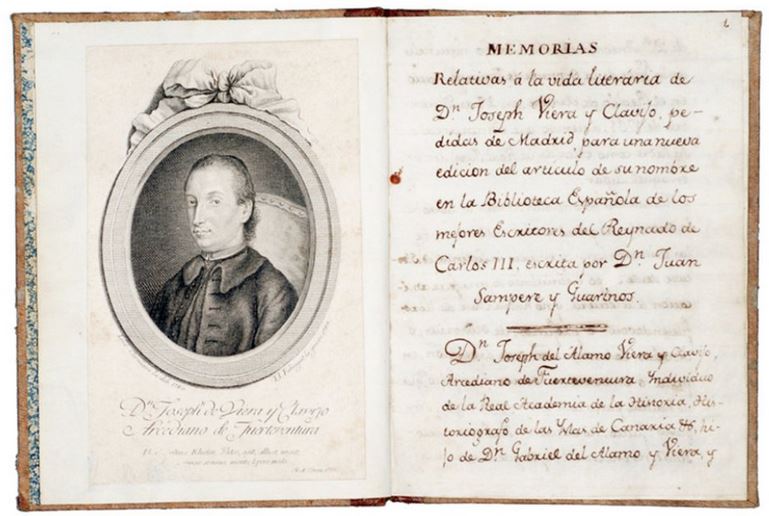 Dⁿ. Joseph de Viera y Clavijo
Arcediano de Fuerteventura
1
MEMORIAS
Relativas á la vida literaria de
Dⁿ. Joseph Viera y Clavijo, pe-
didas de Madrid para una nueva
edicion del articulo de su nombre
en la Biblioteca Española de los
mejores Escritores del Reynado de
Carlos III, escrita por Dⁿ. Juan
Sampere y Guarinos.
Dⁿ. Joseph del Alamo Viera y Clavijo,
Arcediano de Fuerteventura, Individuo
de la Real Academia de la Historia, His-
toriografo de las Yslas de Canaria &, hi-
jo de Dⁿ. Gabriel del Alamo y Viera, y